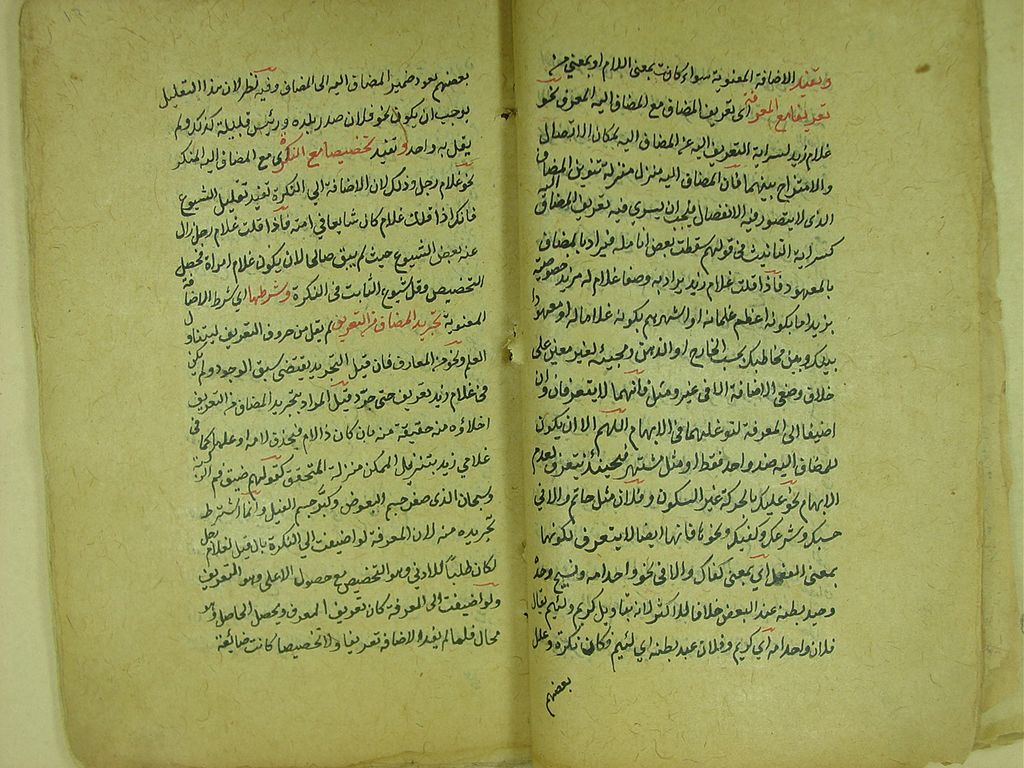 وتفيد الاضافة المعنوية سواء كانت بمعنى اللام او بمعنى من
تعريفا مع المعرفة اى تعريف المضاف مع المضاف اليه المعرف نحو
غلام زيد لسراية التعريف اليه عن المضاف اليه لمكان الاتصال
والامتزاج بينهما فان المضاف اليه منزل منزلة تنوين المضاف
الذى لا يتصور فيه الانفصال فيجب ان يسرى فيه تعريف المضاف اليه
كسراية التانيث فى قولهم سقطت بعض انامله فيراد بالمضاف
بالمعهود فاذا قلت غلام زيد يراد به وصفا غلام له مزيد خصوصية
بزيد اما بكونه اعظم غلمانه او اشهرهم بكونه غلاما له او معهودا
بينك وبين مخاطبك بحسب الخارج او الذهن ومجيئه لغير معين على
خلاف وضعى الاضافة الا فى غير ومثل فانهما لا يتعرفان وان
اضيفا الى المعرفة لتوغلهما فى الابهام اللهم الا ان يكون
للمضاف اليه ضد واحد فقط او مثل مشتهر فحينئذ يتعرف لعدم
الابهام نحو عليك بالحركة غير السكون وفلان مثل حاتم والا فى
حسبك وشرعك وكفيك ونحوها فانها ايضا لا يتعرف لكونها
بمعنى الفعل اى بمعنى كفاك والا فى نحو واحد امه ونسيج وحده
وعبد بطنه عند البعض خلافا للاكثر لانه بتاويل كريم ولئيم يقال
فلان واحد امه اى كريم وفلان عبد بطنه اى لئيم فكان نكرة وعلل
بعضهم
بعضهم بعود ضمير المضاف اليه الى المضاف وفيه نظر لان هذا التعليل
يوجب ان يكون نحو فلان صدر بلده ورئيس قبيلة كذلك ولم
يقل به واحد وتفيد تخصيصا مع النكرة اى مع المضاف اليه المنكر
نحو غلام رجل وذلك لان الاضافة الى النكرة تفيد تقليل الشيوع
فانك اذا قلت غلام كان شايعا فى امته فاذا قلت غلام رجل زال
عنه بعض الشيوع حيث لم يبق صالحا لان يكون غلام امراة فحصل
التخصيص وقل شيوع الثابت فى النكرة وشرطها اى شرط الاضافة
المعنوية تجريد المضاف من التعريف لم يقل من حروف التعريف ليتناول
العلم ونحوه من المعارف فان قيل التجريد يقتضى سبق الوجود ولم يكن
فى غلام زيد تعريف حتى جرد قيل المراد بتجريد المضاف من التعريف
اخلاؤه منه حقيقة منه بان كان ذا لام فيحذف لامه او علم كما فى
غلامى زيد بتنزيل الممكن منزلة المتحقق كقولهم ضيق فم البئر
وسبحان الذى صغر جسم البعوض وكبر جسم الفيل وانما اشترط
تجريده منه لان المعرفة لو اضيفت الى النكرة بان قيل الغلام رجل
لكان طلبا للادنى وهو التخصيص مع حصول الاعلى وهو التعريف
ولو اضيفت الى المعرفة كان تعريف المعرف وتحصيل الحاصل وهو
محال فلما لم يفد الاضافة تعريفا ولا تخصيصا كانت ضايعة